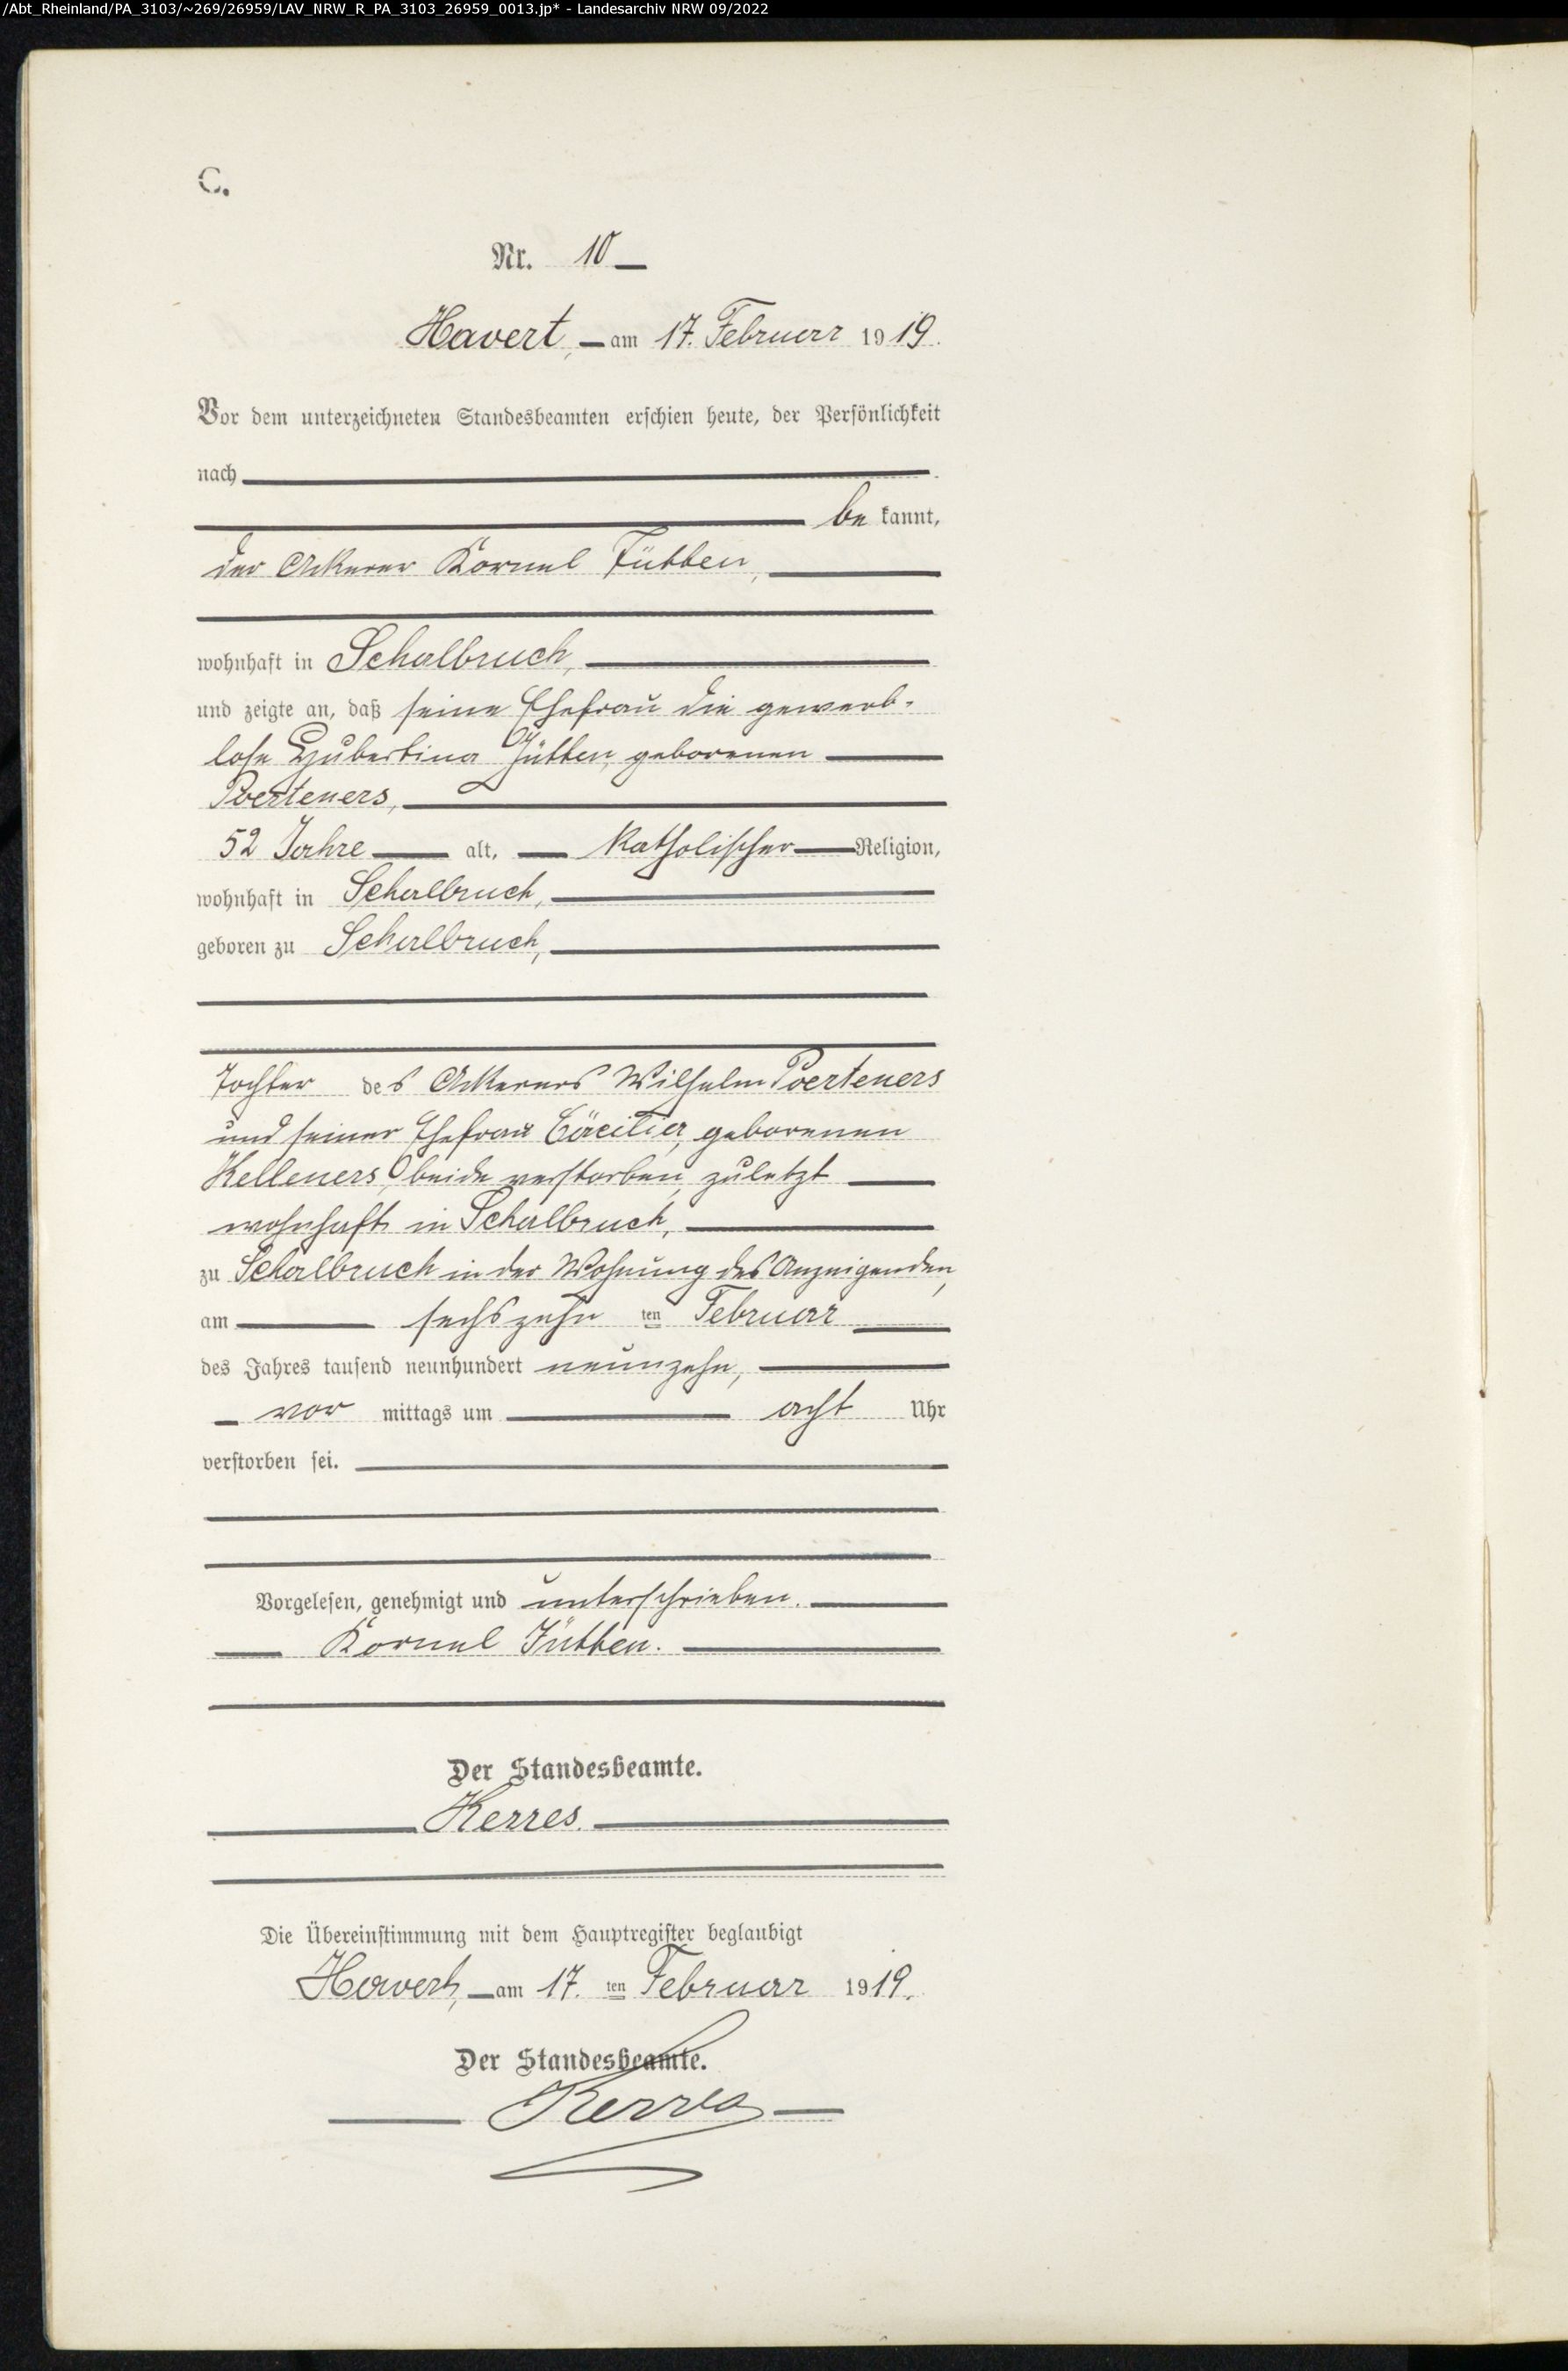 /Abt_Rheinland/PA_3103/~269/26959/LAV_NRW_R_PA_3103_26959_0013.jp* - Landesarchiv NRW 09/2022
C.
Nr. 10
Havert, am 17. Februar 1919.
Vor dem unterzeichneten Standesbeamten erschien heute, der Persönlichkeit
nach
be kannt,
der Ackerer Kornel Jütten,
wohnhaft in Schalbruch,
und zeigte an, daß seine Ehefrau die gewerb-
lose Hubertina Jütten, geborenen
Poerteners,
52 Jahre alt, katholischer Religion,
wohnhaft in Schalbruch,
geboren zu Schalbruch,
Tochter des Ackerers Wilhelm Poerteners
und seiner Ehefrau Cäcilia, geborenen
Kelleners, beide verstorben, zuletzt
wohnhaft in Schalbruch,
zu Schalbruch in der Wohnung des Anzeigenden,
am sechszehn ten Februar
des Jahres tausend neunhundert neunzehn,
vor mittags um acht Uhr
verstorben sei.
Vorgelesen, genehmigt und unterschrieben.
Kornel Jütten.
Der Standesbeamte.
Kerres.
Die Übereinstimmung mit dem Hauptregister beglaubigt
Havert, am 17. ten Februar 1919.
Der Standesbeamte.
Kerres